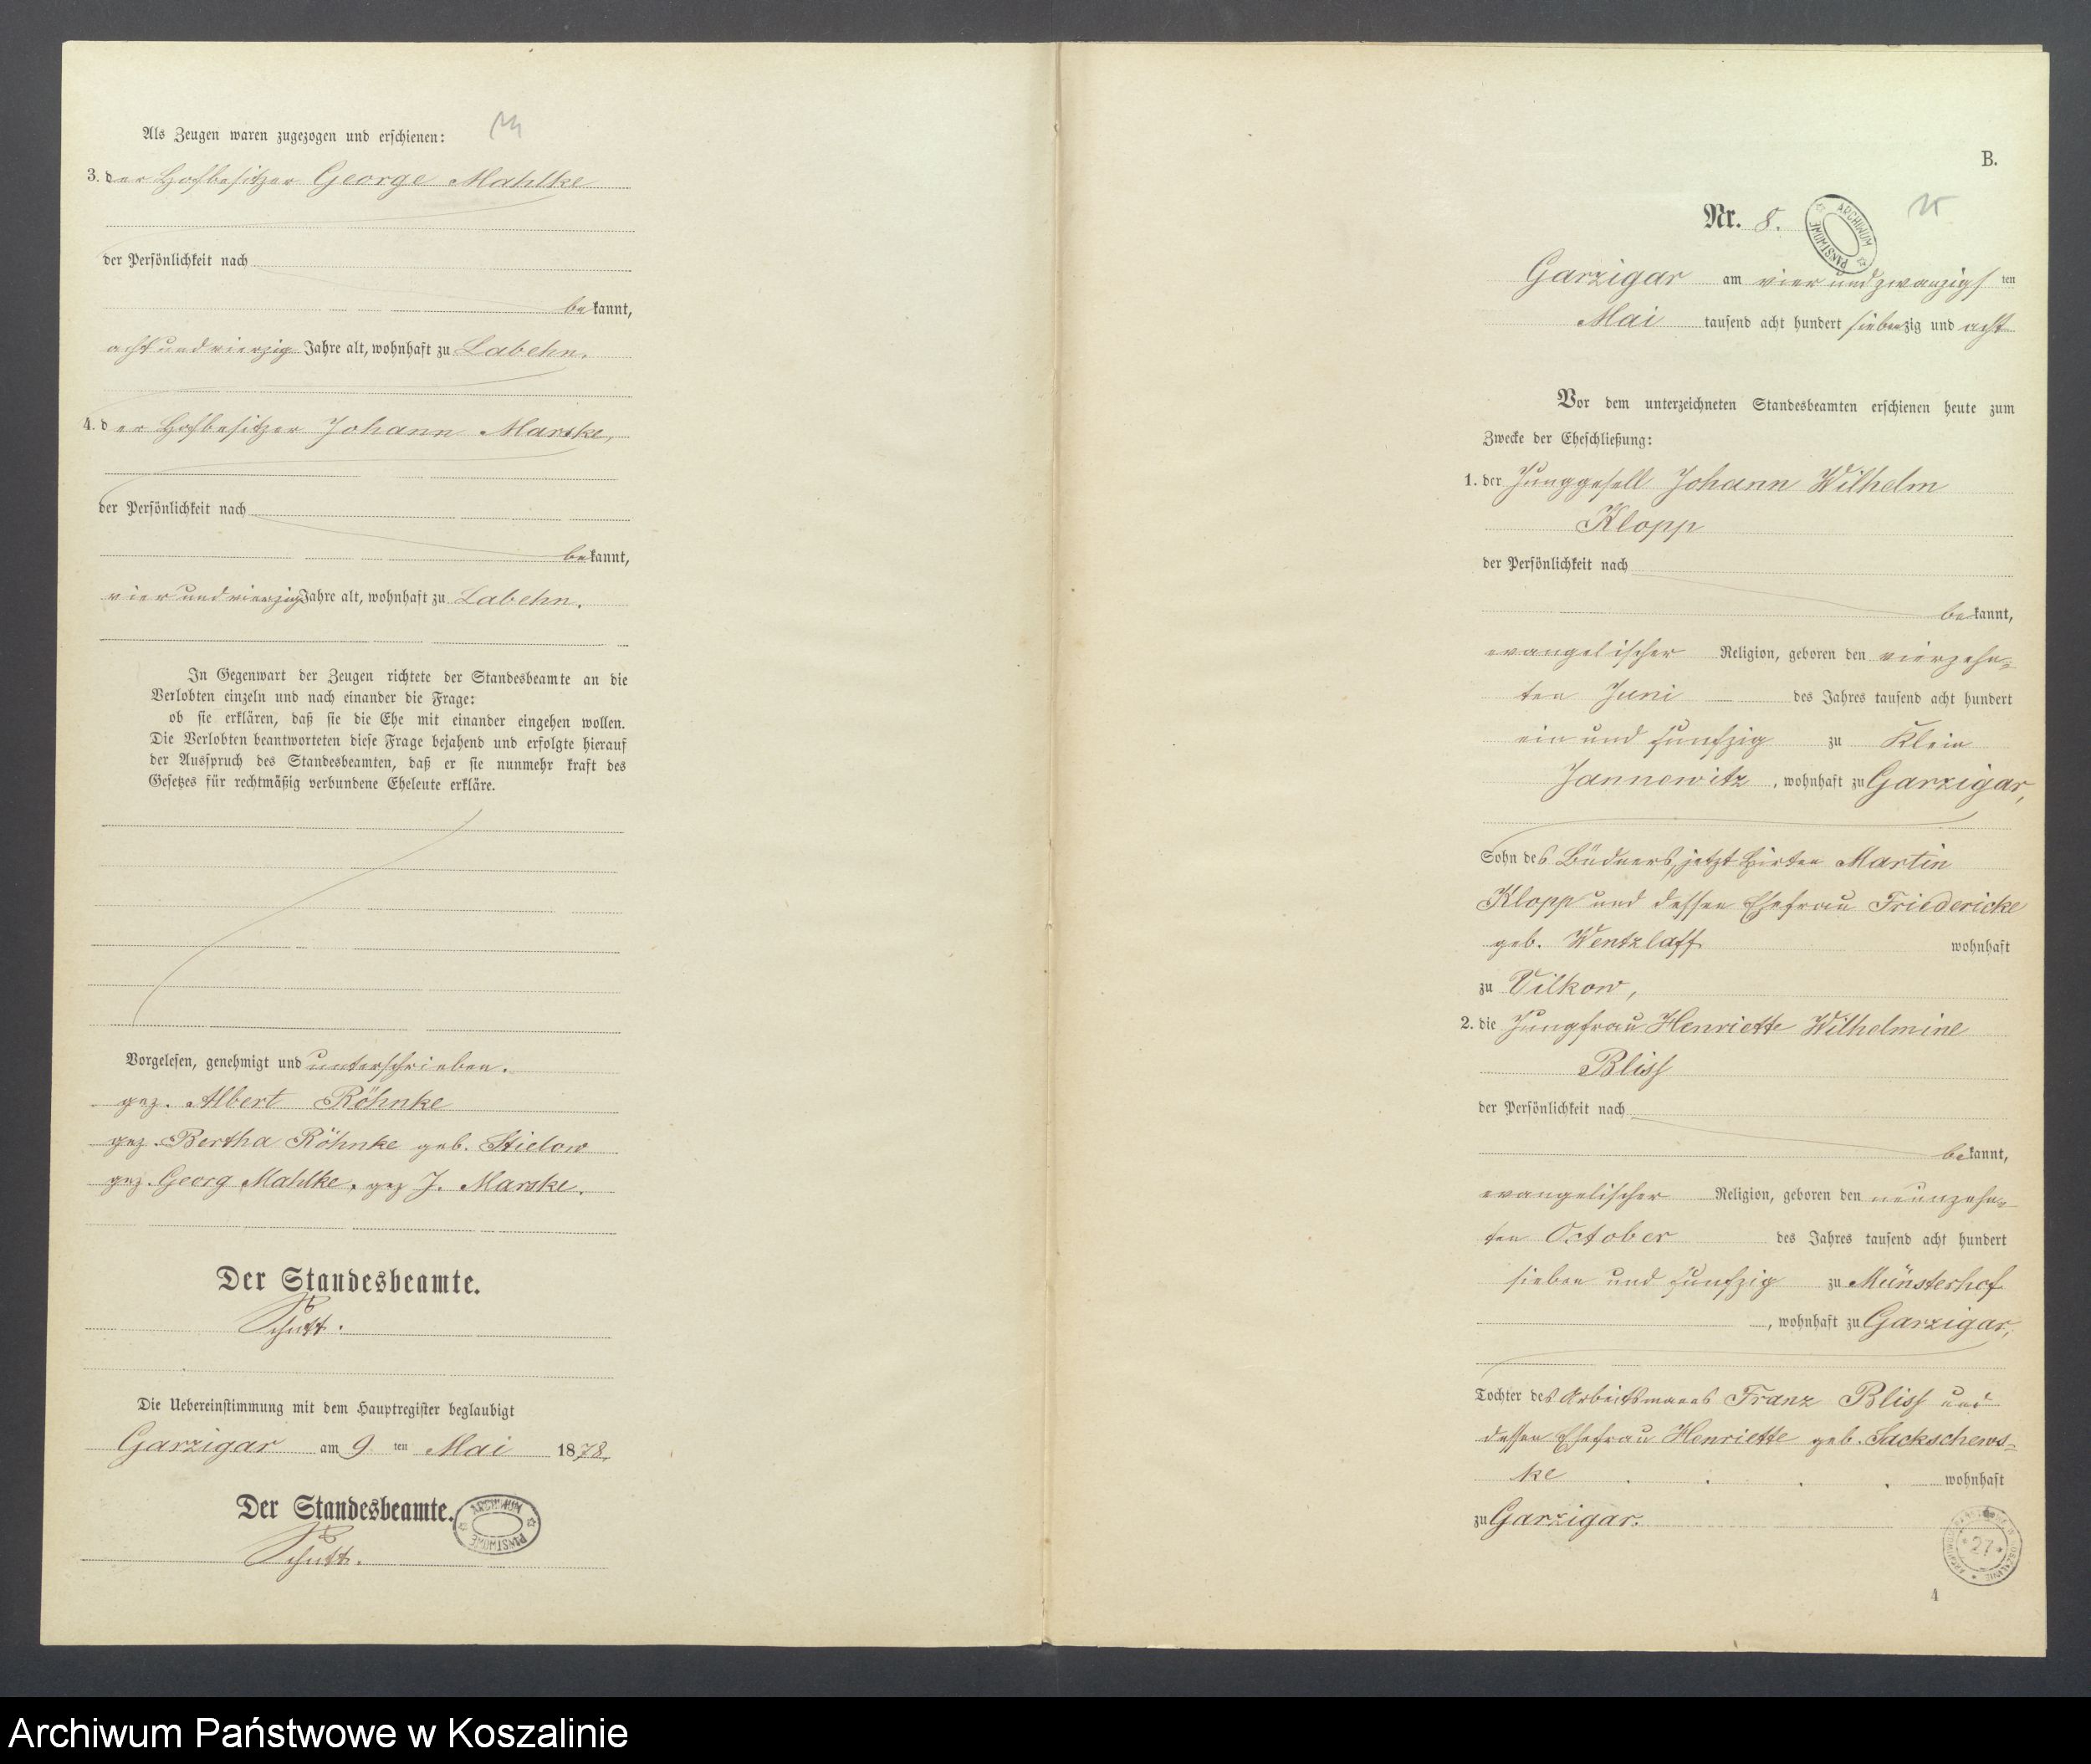 Als Zeugen waren zugezogen und erschienen:
3. der Hofbesitzer George Mahlke
der Persönlichkeit nach
bekannt,
acht und vierzig Jahre alt, wohnhaft zu Labehn.
4. der Hofbesitzer Johann Marske,
der Persönlichkeit nach
bekannt,
vier und vierzig Jahre alt, wohnhaft zu Labehn.
In Gegenwart der Zeugen richtete der Standesbeamte an die
Verlobten einzeln und nach einander die Frage:
ob sie erklären, daß sie die Ehe mit einander eingehen wollen.
Die Verlobten beantworteten diese Frage bejahend und erfolgte hierauf
der Ausspruch des Standesbeamten, daß er sie nunmehr kraft des
Gesetzes für rechtmäßig verbundene Eheleute erkläre.
Vorgelesen, genehmigt und unterschrieben.
gez. Albert Röhnke
gez. Bertha Röhnke geb. Stielow
gez. Georg Mahlke, gez J. Marske.
Der Standesbeamte.
Schutt.
Die Uebereinstimmung mit dem Hauptregister beglaubigt
Garzigar am 9 ten Mai 1878.
Der Standesbeamte.
ARCHIWUM PAŃSTWOWE
Schutt.
B.
Nr. 8.
15
ARCHIWUM PAŃSTWOWE
Garzigar am vier und zwanzigsten
Mai tausend acht hundert siebenzig und acht
Vor dem unterzeichneten Standesbeamten erschienen heute zum
Zwecke der Eheschließung:
1. der Junggesell Johann Wilhelm
Klopp
der Persönlichkeit nach
bekannt,
evangelischer Religion, geboren den vierzehn-
ten Juni des Jahres tausend acht hundert
ein und funfzig zu Klein
Jannewitz, wohnhaft zu Garzigar,
Sohn des Büdners, jetzt Hirten Martin
Klopp und dessen Ehefrau Friedericke
geb. Wentzlaff wohnhaft
zu Vilkow,
2. die Jungfrau Henriette Wilhelmine
Bliss
der Persönlichkeit nach
bekannt,
evangelischer Religion, geboren den neunzehn-
ten October des Jahres tausend acht hundert
sieben und funfzig zu Münsterhof
, wohnhaft zu Garzigar,
Tochter des Arbeitsmanns Franz Bliss und
dessen Ehefrau Henriette geb. Sackschews-
ke wohnhaft
zu Garzigar.
27
4
Archiwum Państwowe w Koszalinie